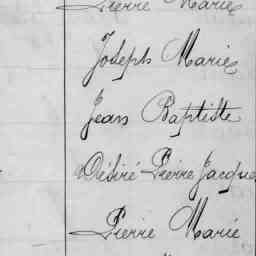 Pierre Marie
Joseph Marie
Jean Baptiste
Désiré Pierre Jacques
Pierre Marie